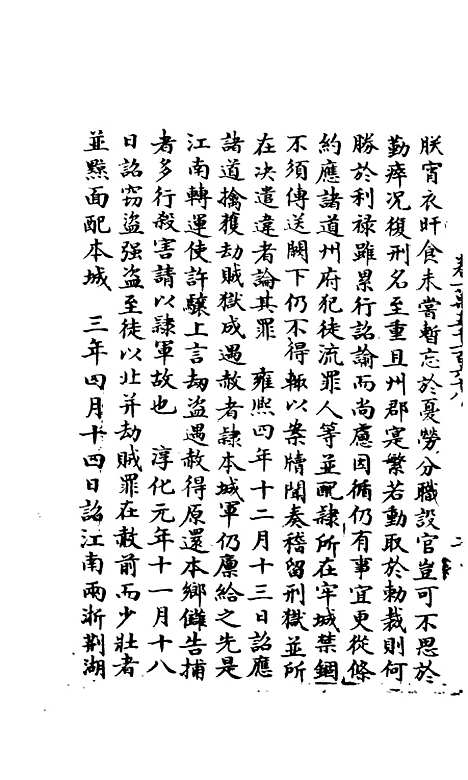 朕宵衣旰食未嘗暫忘於憂勞分職設官豈可不思於
勤瘁况復刑名至重且州郡寔繁若動取於勅裁則何
勝於利禄雖累行詔諭而尚慮因循仍有事宜更從條
約應諸道州府犯徒流罪人等並配隷所在牢城禁錮
不須傳送闕下仍不得輒以案牘聞奏稽留刑獄並所
在决遣違者論其罪　雍熙四年十二月十三日詔應
諸道擒獲劫賊獄成遇赦者隷本城軍仍廪給之先是
江南轉運使許驤上言劫盗遇赦得原還本鄉讎告捕
者多行殺害請以隷軍故也　淳化元年十一月十八
日詔窃盗强盗至徒以上并劫賊罪在赦前而少壯者
並黥面配本城　三年四月十四日詔江南兩浙荆湖